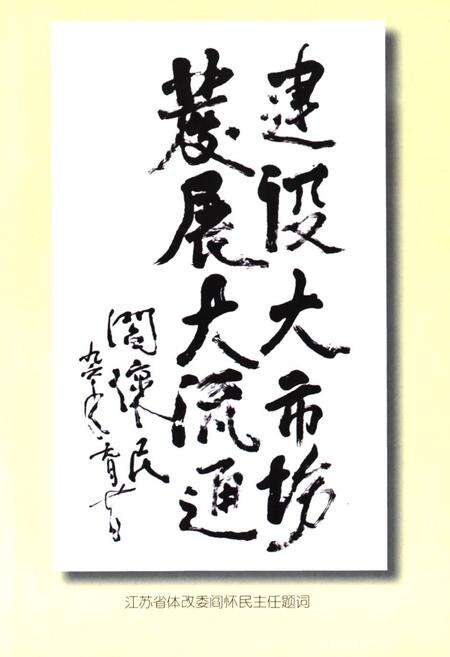 建设大市場
發展大流通
閻懷民
九六年
江苏省体改委阎怀民主任题词